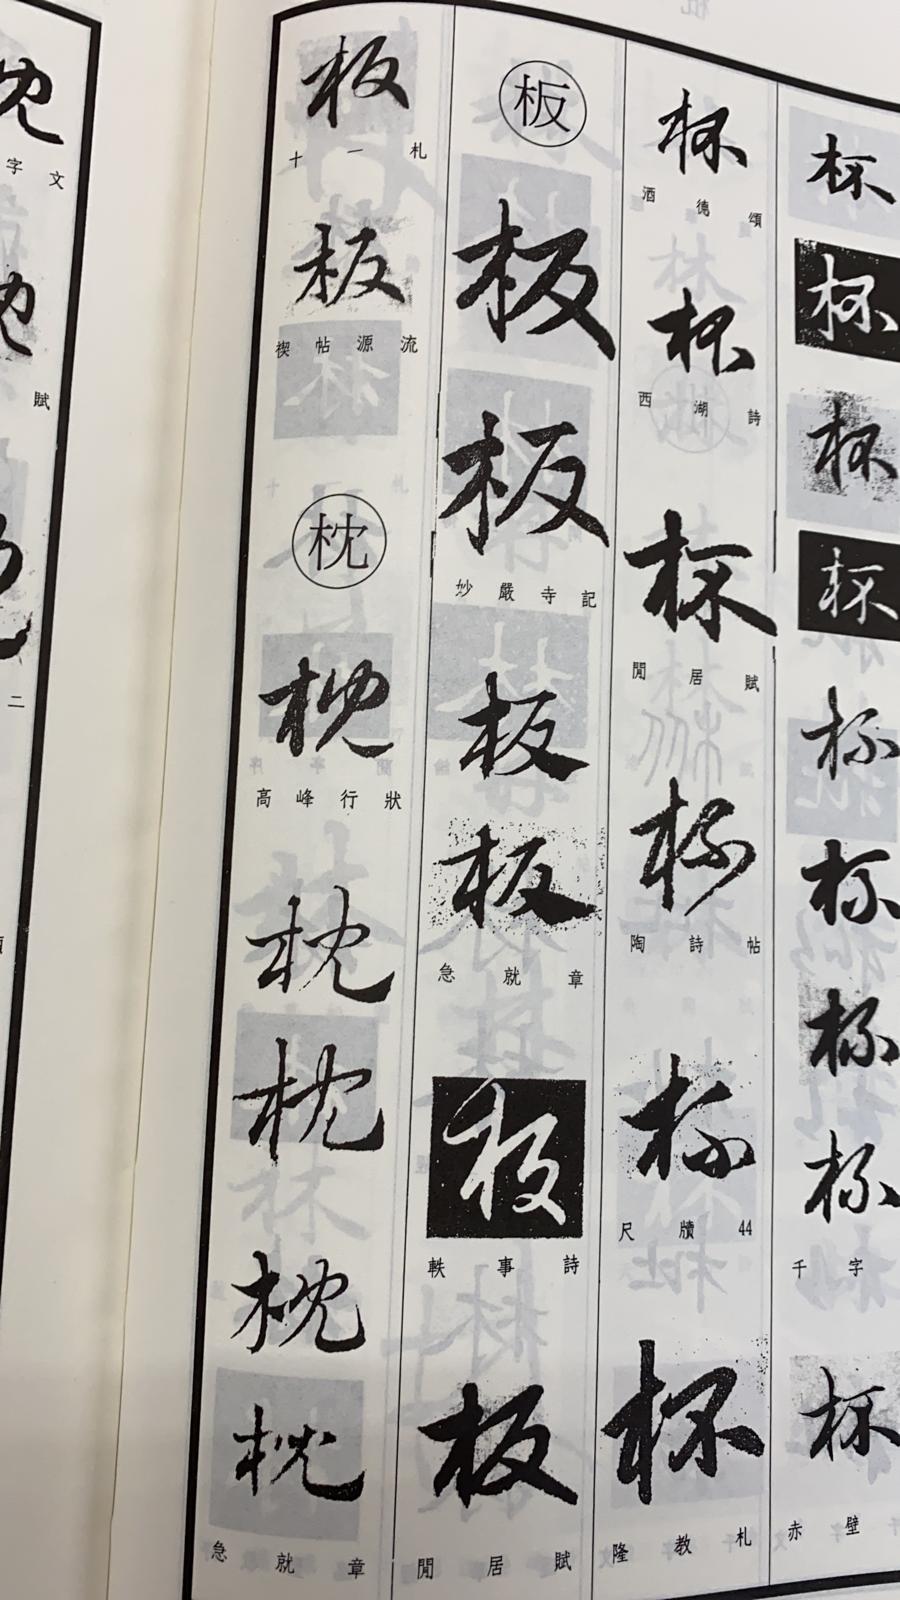 杯
杯
杯
杯
杯
杯
杯
杯
千字
杯
赤壁
杯
酒德頌
杯
西湖詩
杯
閒居賦
杯
陶詩帖
杯
尺牘44
杯
隆教札
板
板
板
妙嚴寺記
板
板
急就章
板
軼事詩
板
閒居賦
板
十一札
板
禊帖源流
枕
枕
高峰行狀
枕
枕
枕
枕
急就章
字文
賦
二